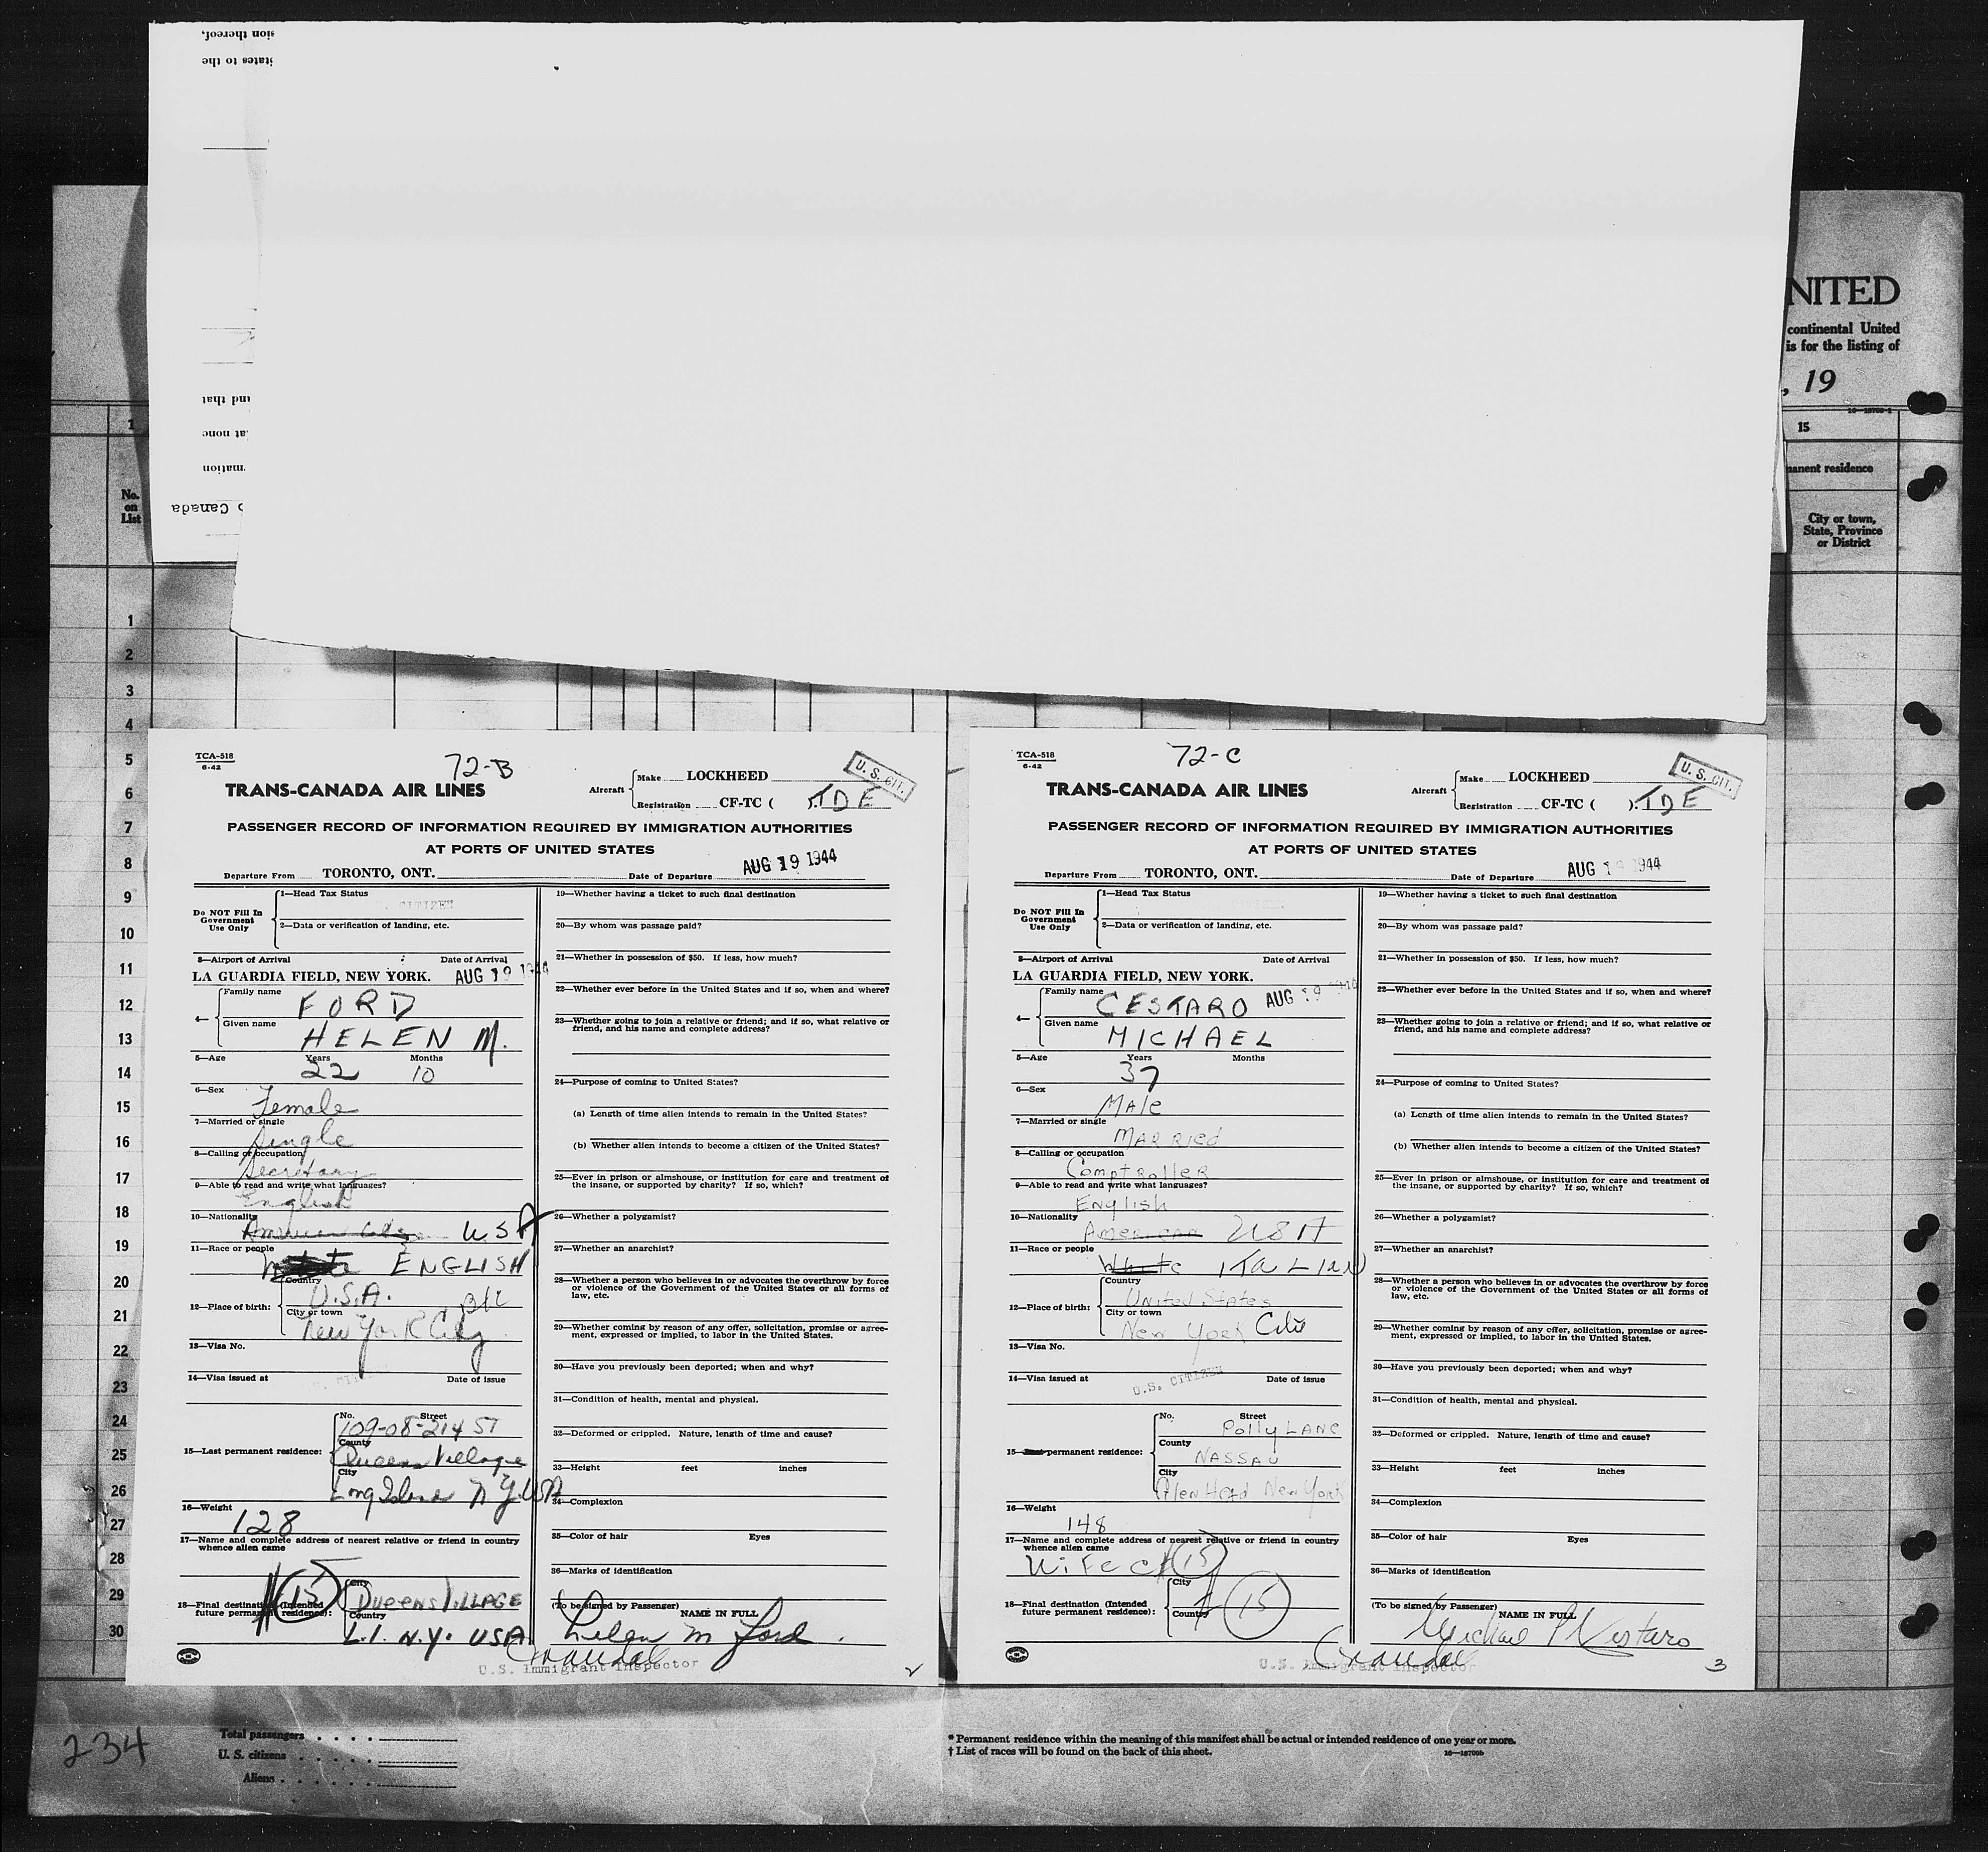 sion thereof,
states to the
und that
at none
mation
o Canada
NITED
continental United
is for the listing of
, 19
16—18708-1
15
manent residence
City or town,
State, Province
or District
No.
on
List
1
1
2
3
4
5
6
7
8
9
10
11
12
13
14
15
16
17
18
19
20
21
22
23
24
25
26
27
28
29
30
TCA-518
6-42
72-B
U. S. CIT.
TRANS-CANADA AIR LINES
Aircraft
Make LOCKHEED
Registration CF-TC ( ) TDE
PASSENGER RECORD OF INFORMATION REQUIRED BY IMMIGRATION AUTHORITIES
AT PORTS OF UNITED STATES
Departure From TORONTO, ONT. Date of Departure AUG 19 1944
Do NOT Fill In
Government
Use Only
1—Head Tax Status
CITIZEN
2—Data or verification of landing, etc.
3—Airport of Arrival Date of Arrival
LA GUARDIA FIELD, NEW YORK. AUG 19 1944
4—
Family name FORD
Given name HELEN M.
5—Age Years Months
22 10
6—Sex
Female
7—Married or single
Single
8—Calling or occupation
Secretary
9—Able to read and write what languages?
English
10—Nationality
American USA
11—Race or people
White ENGLISH
12—Place of birth:
Country
U.S.A.
City or town
New York City
13—Visa No.
14—Visa issued at Date of issue
15—Last permanent residence:
No. Street
109-08-214 ST
County
Queens Village
City
Long Island N.Y. USA
16—Weight
128
17—Name and complete address of nearest relative or friend in country
whence alien came
18—Final destination (Intended
future permanent residence):
#15
City
QUEENS VILLAGE
Country
L.I. N.Y. USA
19—Whether having a ticket to such final destination
20—By whom was passage paid?
21—Whether in possession of $50. If less, how much?
22—Whether ever before in the United States and if so, when and where?
23—Whether going to join a relative or friend; and if so, what relative or
friend, and his name and complete address?
24—Purpose of coming to United States?
(a) Length of time alien intends to remain in the United States?
(b) Whether alien intends to become a citizen of the United States?
25—Ever in prison or almshouse, or institution for care and treatment of
the insane, or supported by charity? If so, which?
26—Whether a polygamist?
27—Whether an anarchist?
28—Whether a person who believes in or advocates the overthrow by force
or violence of the Government of the United States or all forms of
law, etc.
29—Whether coming by reason of any offer, solicitation, promise or agree-
ment, expressed or implied, to labor in the United States.
30—Have you previously been deported; when and why?
31—Condition of health, mental and physical.
32—Deformed or crippled. Nature, length of time and cause?
33—Height feet inches
34—Complexion
35—Color of hair Eyes
36—Marks of identification
(To be signed by Passenger) NAME IN FULL
Helen M Ford
U.S. Immigrant Inspector
2
TCA-518
6-42
72-C
U. S. CIT.
TRANS-CANADA AIR LINES
Aircraft
Make LOCKHEED
Registration CF-TC ( ) TDE
PASSENGER RECORD OF INFORMATION REQUIRED BY IMMIGRATION AUTHORITIES
AT PORTS OF UNITED STATES
Departure From TORONTO, ONT. Date of Departure AUG 19 1944
Do NOT Fill In
Government
Use Only
1—Head Tax Status
2—Data or verification of landing, etc.
3—Airport of Arrival Date of Arrival
LA GUARDIA FIELD, NEW YORK.
AUG 19 1944
4—
Family name CESTARO
Given name MICHAEL
5—Age Years Months
37
6—Sex
Male
7—Married or single
MARRIED
8—Calling or occupation
Comptroller
9—Able to read and write what languages?
English
10—Nationality
American USA
11—Race or people
White ITALIAN
12—Place of birth:
Country
United States
City or town
New York City
13—Visa No.
14—Visa issued at Date of issue
U.S. CITIZEN
15—Last permanent residence:
No. Street
Polly LANE
County
NASSAU
City
Glen Head New York
16—Weight
148
17—Name and complete address of nearest relative or friend in country
whence alien came
Wife #15
18—Final destination (Intended
future permanent residence):
City
Country
#15
19—Whether having a ticket to such final destination
20—By whom was passage paid?
21—Whether in possession of $50. If less, how much?
22—Whether ever before in the United States and if so, when and where?
23—Whether going to join a relative or friend; and if so, what relative or
friend, and his name and complete address?
24—Purpose of coming to United States?
(a) Length of time alien intends to remain in the United States?
(b) Whether alien intends to become a citizen of the United States?
25—Ever in prison or almshouse, or institution for care and treatment of
the insane, or supported by charity? If so, which?
26—Whether a polygamist?
27—Whether an anarchist?
28—Whether a person who believes in or advocates the overthrow by force
or violence of the Government of the United States or all forms of
law, etc.
29—Whether coming by reason of any offer, solicitation, promise or agree-
ment, expressed or implied, to labor in the United States.
30—Have you previously been deported; when and why?
31—Condition of health, mental and physical.
32—Deformed or crippled. Nature, length of time and cause?
33—Height feet inches
34—Complexion
35—Color of hair Eyes
36—Marks of identification
(To be signed by Passenger) NAME IN FULL
Michael P Cestaro
U.S. Immigrant Inspector
3
234
Total passengers
U. S. citizens
Aliens
* Permanent residence within the meaning of this manifest shall be actual or intended residence of one year or more.
† List of races will be found on the back of this sheet.